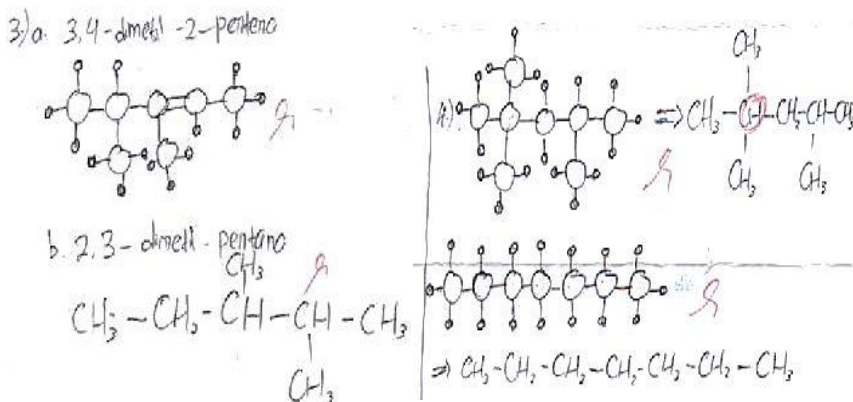 3.) a. 3,4-dimetil-2-penteno
b. 2,3-dimetil-pentano
CH₃
CH₃-CH₂-CH-CH-CH₃
CH₃
4)
CH₃
⇒ CH₃-CH-CH₂-CH-CH₃
CH₃ CH₃
⇒ CH₃-CH₂-CH₂-CH₂-CH₂-CH₂-CH₃